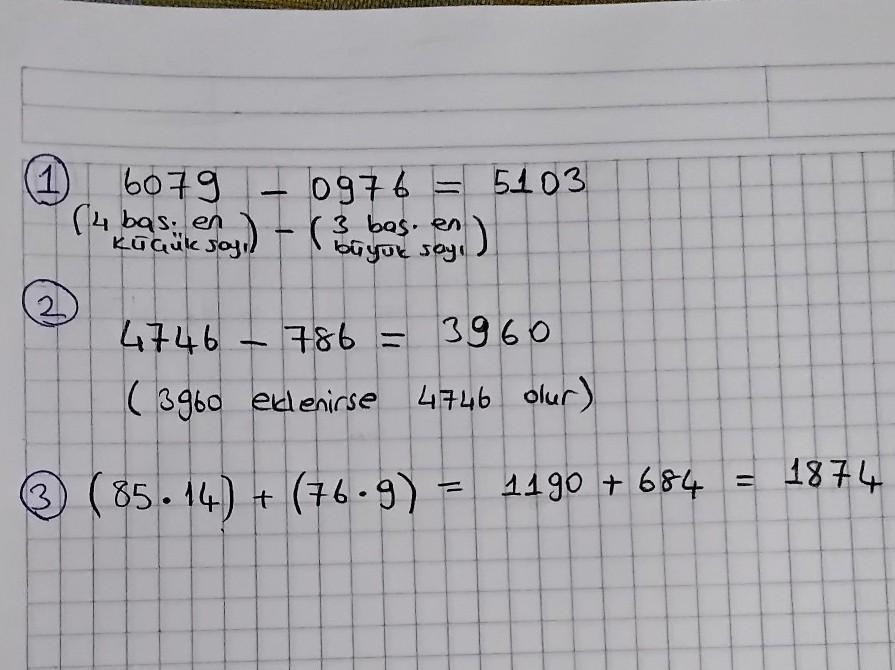 1 6079 - 0976 = 5103
(4 bas. en küçük sayı) - (3 bas. en büyük sayı)
2
4746 - 786 = 3960
(3960 eklenirse 4746 olur)
3 (85.14) + (76.9) = 1190 + 684 = 1874